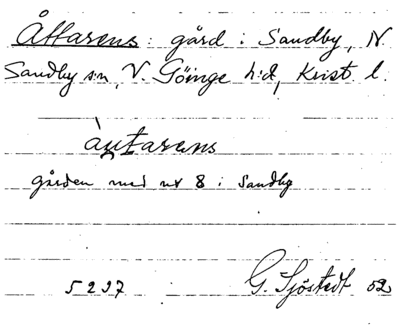 Åttarens: gård i Sandby, N
Sandby sn, V. Göinge hd, Krist l.
àutarens
gården med nr 8 i Sandby
5297 G. Sjöstedt 52